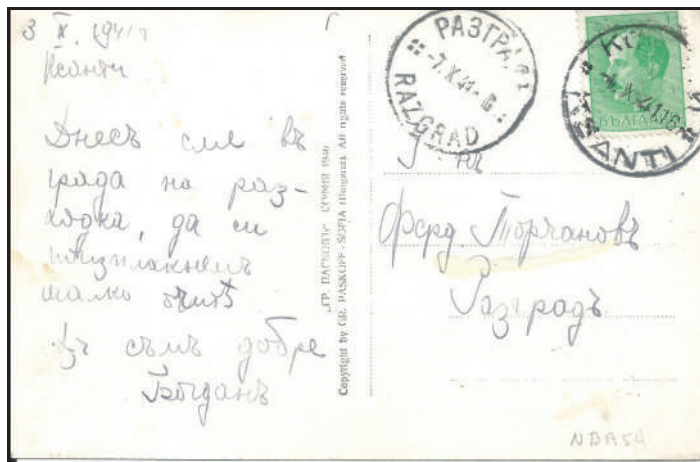 3 X. 1941 г
Ксанти
Днесъ сме въ
града на раз-
ходка, да си
малко очитѣ
Бъ съмъ добре
Богданъ
„ГР. ПАСКОВЪ" СОФИЯ 1940
Copyright by GR. PASKOFF - SOFIA (Bulgaria). All rights reserved
РАЗГРАД
-7.X.41-
RAZGRAD
X.41.16
XANTI
БЪЛГАРИЯ
Ферд. Торчановъ
Разградъ
NBA54